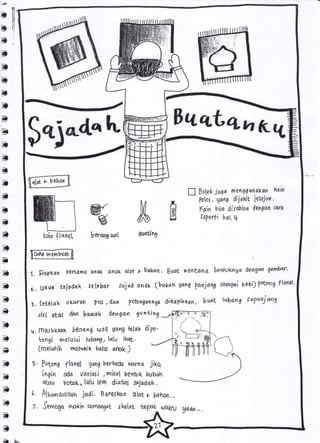 Sajadah Buatanku
alat & bahan
kain flanel
benang wol
gunting
□ Boleh juga menggunakan kain
polos, yang dijahit jelujur.
Kain bisa dicoblos dengan cara
seperti hal. 4
cara membuat
1. Siapkan bersama anak alat & bahan. Buat rencana bentuknya dengan gambar.
2. Ukur sajadah selebar sujud anak (bukan yang panjang sampai kaki) potong flanel.
3. Setelah ukuran pas, dan potongannya dirapihkan, buat lubang sepanjang
sisi atas dan bawah dengan gunting
4. Masukkan benang woll yang telah dipo-
tong melalui lubang, lalu ikat.
(melatih motorik halus anak)
5. Potong flanel yang berbeda warna jika
ingin ada variasi, misal bentuk kubah
atau kotak, lalu lem diatas sajadah.
6. Alhamdulillah jadi. Bereskan alat & bahan...
7. Semoga makin semangat shalat tepat waktu yaaa...
21